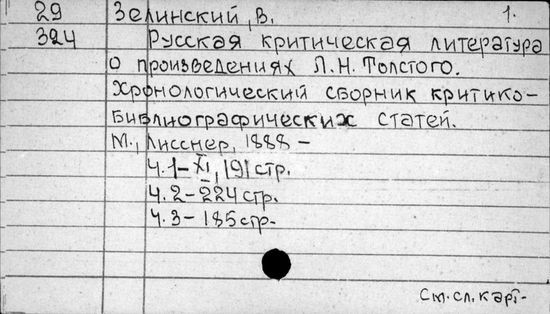 29 Зелинский, В. 1.
324 Русская критическая литература
о произведениях Л.Н. Толстого.
Хронологический сборник критико-
библиографических статей.
М., Лисснер, 1888 -
Ч. 1 - XI, 191 стр.
Ч. 2 - 224 стр.
Ч. 3 - 185 стр.
См. сл. карт.